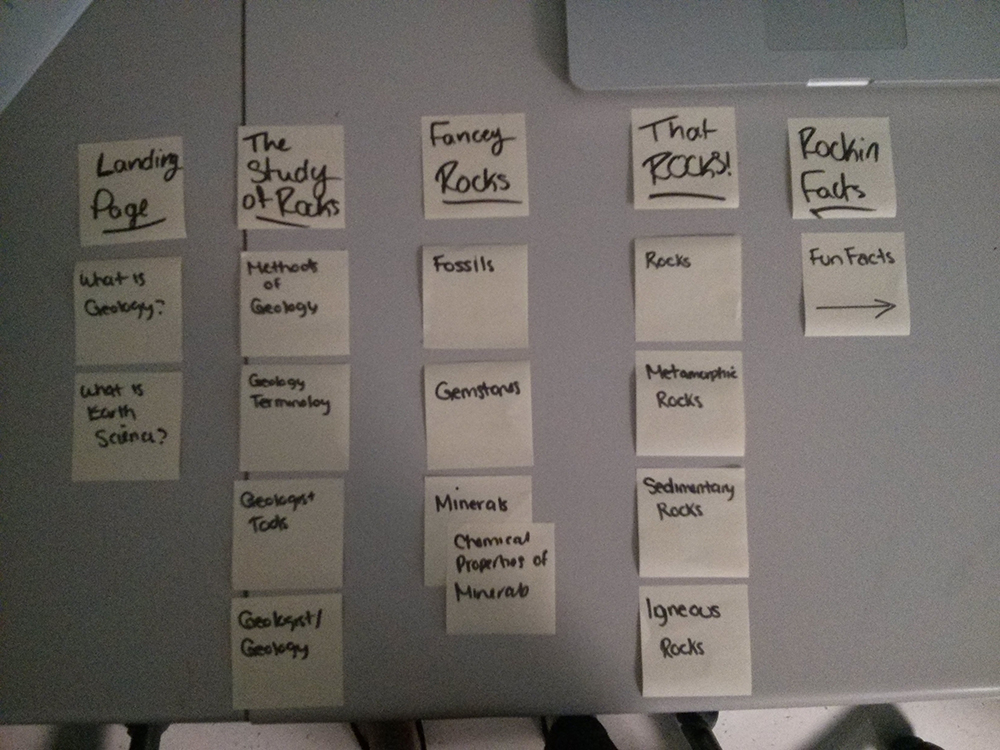 Landing
Page
What is
Geology?
What is
Earth
Science?
The
Study
of Rocks
Methods
of
Geology
Geology
Terminology
Geologist
Tools
Geologist/
Geology
Fancey
Rocks
Fossils
Gemstones
Minerals
Chemical
Properties of
Minerals
That
ROCKS!
Rocks
Metamorphic
Rocks
Sedimentary
Rocks
Igneous
Rocks
Rockin
Facts
Fun Facts